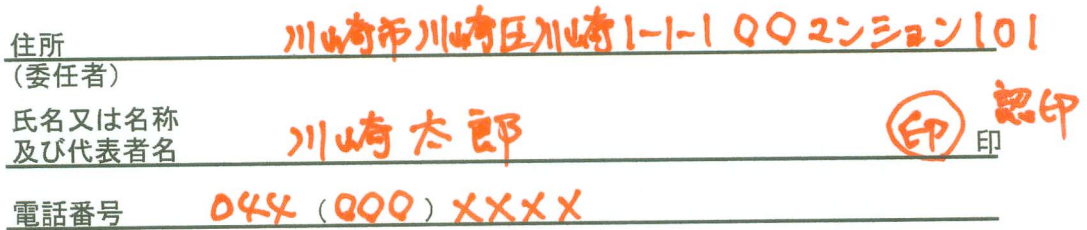 住所 川崎市川崎区川崎1-1-1 〇〇マンション101
(委任者)
氏名又は名称
及び代表者名 川崎 太郎 印 印 認印
電話番号 044 (000) ××××